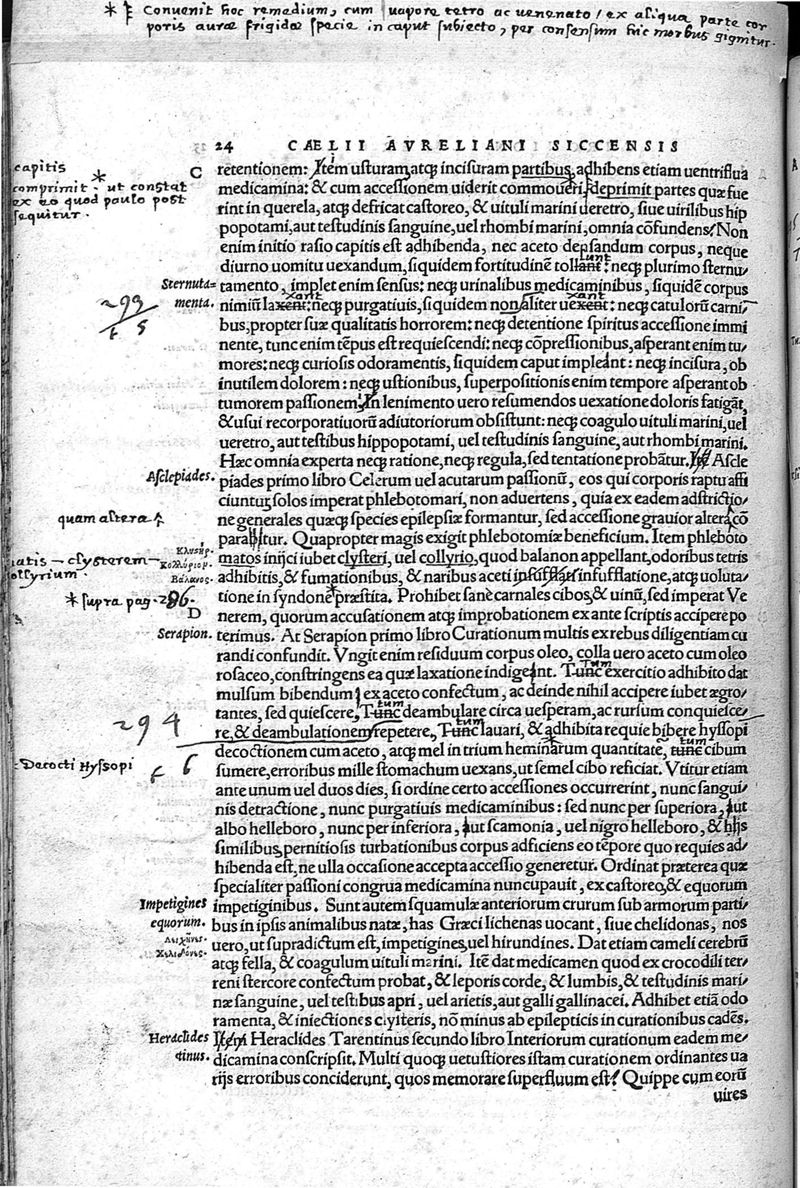 * Ɛ Convenit hoc remedium, cum vapore tetro ac venenato / ex aliqua parte cor
poris auræ frigidæ specie in caput subiecto, per consensum hic morbus gignitur.
24 CAELII AVRELIANI SICCENSIS
capitis
* comprimit. ut constat
ex eo quod paulo post
sequitur.
C
retentionem: Item usturam, atq; incisuram partibus, adhibens etiam uentriflua
medicamina: & cum accessionem uiderit commoueri, deprimit partes quæ fue
rint in querela, atq; defricat castoreo, & uituli marini ueretro, siue uirilibus hip
popotami, aut testudinis sanguine, uel rhombi marini, omnia cõfundens. Non
enim initio rasio capitis est adhibenda, nec aceto densandum corpus, neque
diurno uomitu uexandum, siquidem fortitudinẽ tollant: neq; plurimo sternu
Sternuta=
menta.
tamento, implet enim sensus: neq; urinalibus medicaminibus, siquidẽ corpus
nimiũ laxent: neq; purgatiuis, siquidem non aliter uexent: neq; catulorũ carni
bus, propter suæ qualitatis horrorem: neq; detentione spiritus accessione immi
nente, tunc enim tẽpus est requiescendi: neq; cõpressionibus, asperant enim tu
mores: neq; curiosis odoramentis, siquidem caput impleant: neq; incisura, ob
inutilem dolorem: neq; ustionibus, superpositionis enim tempore asperant ob
tumorem passionem. In lenimento uero resumendos uexatione doloris fatigãt,
& usui recorporatiuorũ adiutoriorum obsistunt: neq; coagulo uituli marini, uel
ueretro, aut testibus hippopotami, uel testudinis sanguine, aut rhombi marini.
Hæc omnia experta neq; ratione, neq; regula, sed tentatione probãtur. Ascle
299
Asclepiades.
piades primo libro Celerum uel acutarum passionũ, eos qui corporis raptu affi
ciuntur, solos imperat phlebotomari, non aduertens, quia ex eadem adstrictio
ne generales quæq; species epilepsiæ formantur, sed accessione grauior altera cõ
quam altera
paratur. Quapropter magis exigit phlebotomiæ beneficium. Item phleboto
matos inijci iubet clysteri, uel collyrio, quod balanon appellant, odoribus tetris
adhibitis, & fumationibus, & naribus aceti insufflatione, atq; uoluta
tione in syndone præstita. Prohibet sanè carnales cibos, & uinũ, sed imperat Ve
nerem, quorum accusationem atq; improbationem ex ante scriptis accipere po
Κλυσήρ.
Κολλύριομ.
Βάλανος.
iatis — clysterem —
ollyrium.
* supra pag. 286.
D
Serapion.
terimus. At Serapion primo libro Curationum multis ex rebus diligentiam cu
randi confundit. Vngit enim residuum corpus oleo, colla uero aceto cum oleo
rosaceo, constringens ea quæ laxatione indigent. Tunc exercitio adhibito dat
mulsum bibendum, ex aceto confectum, ac deinde nihil accipere iubet ægro
tantes, sed quiescere, Tunc deambulare circa uesperam, ac rursum conquiesce
re, & deambulationem repetere, Tunc lauari, & adhibita requie bibere hyssopi
294
6
Decocti Hyssopi
decoctionem cum aceto, atq; mel in trium heminarum quantitate, tunc cibum
sumere, erroribus mille stomachum uexans, ut semel cibo reficiat. Vtitur etiam
ante unum uel duos dies, si ordine certo accessiones occurrerint, nunc sangui
nis detractione, nunc purgatiuis medicaminibus: sed nunc per superiora, aut
albo helleboro, nunc per inferiora, aut scamonia, uel nigro helleboro, & hijs
similibus, pernitiosis turbationibus corpus adficiens eo tẽpore quo requies ad
hibenda est, ne ulla occasione accepta accessio generetur. Ordinat præterea quæ
specialiter passioni congrua medicamina nuncupauit, ex castoreo, & equorum
Impetigines
equorum.
Λειχῆνες.
Χελιδόνες.
impetiginibus. Sunt autem squamulæ anteriorum crurum sub armorum parti
bus in ipsis animalibus natæ, has Græci lichenas uocant, siue chelidonas, nos
uero, ut supradictum est, impetigines, uel hirundines. Dat etiam cameli cerebrũ
atq; fella, & coagulum uituli marini. Itẽ dat medicamen quod ex crocodili ter
reni stercore confectum probat, & leporis corde, & lumbis, & testudinis mari
næ sanguine, uel testibus apri, uel arietis, aut galli gallinacei. Adhibet etiã odo
ramenta, & iniectiones clysteris, nõ minus ab epilepticis in curationibus cadẽs.
Heraclides
tinus.
Heraclides Tarentinus secundo libro Interiorum curationum eadem me
dicamina conscripsit. Multi quoq; uetustiores istam curationem ordinantes ua
rijs erroribus conciderunt, quos memorare superfluum est. Quippe cum eorũ
uires